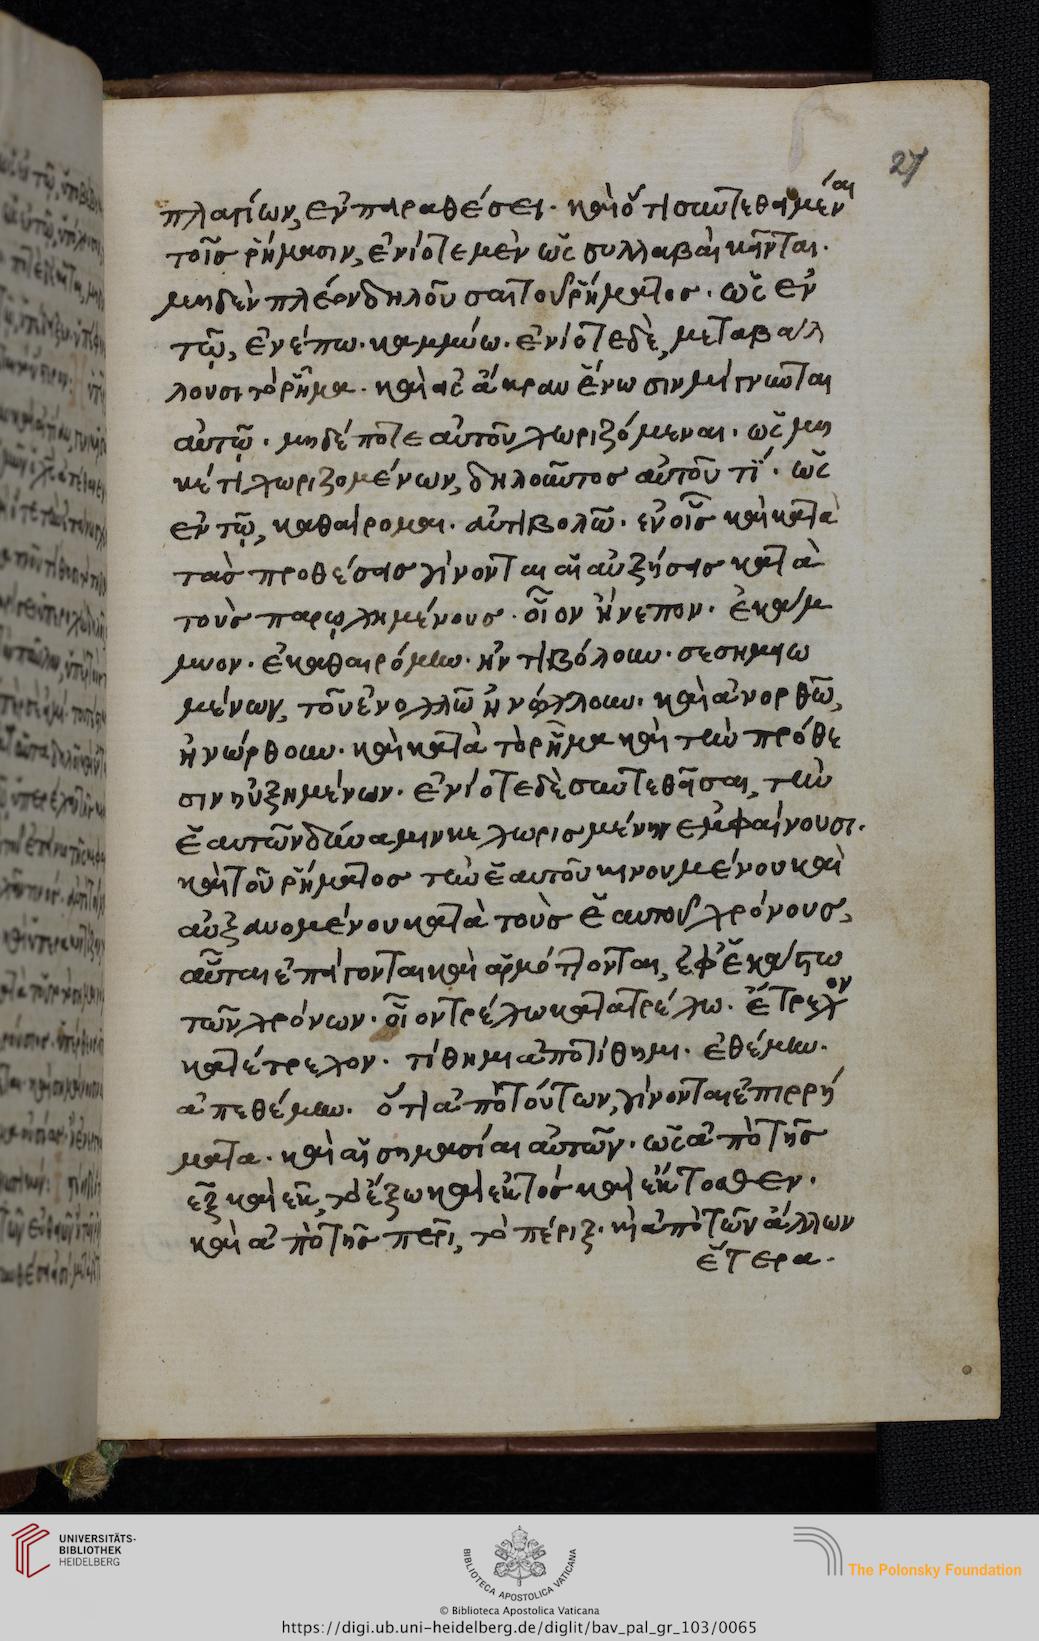 27
πλαγίων, ἐν παραθέσει. καὶ ὅτι συντεθειμέναι
τοῖς ῥήμασιν, ἐνίοτε μὲν ὡς συλλαβαὶ κεῖνται.
μηδὲν πλέον δηλοῦσαι τοῦ ῥήματος. ὡς ἐν
τῷ, ἐνέπω. καμμύω. ἐνίοτε δὲ, μεταβάλ
λουσι τὸ ῥῆμα. καὶ εἰς ἄκραν ἕνωσιν μίγνυνται
αὐτῷ. μηδέποτε αὐτοῦ χωριζόμεναι. ὡς μη
κέτι χωριζομένων, δηλοῦντος αὐτοῦ τί. ὡς
ἐν τῷ, καθαίρομαι. ἀντιβολῶ. ἐν οἷς καὶ κατὰ
τὰς προθέσεις γίνονται αἱ αὐξήσεις κατὰ
τοὺς παρῳχημένους. οἷον ἤνεπον. ἐκάμ
μυον. ἐκαθαιρόμην. ἠντιβόλουν. σεσημειω
μένων, τοῦ ἐνοχλῶ ἠνώχλουν. καὶ ἀνορθῶ,
ἠνώρθουν. καὶ κατὰ τὸ ῥῆμα καὶ τὴν πρόθε
σιν ηὐξημένων. ἐνίοτε δὲ συντεθεῖσαι, τὴν
ἑαυτῶν δύναμιν κεχωρισμένην ἐμφαίνουσι.
καὶ τοῦ ῥήματος τὴν ἑαυτοῦ κινουμένου καὶ
αὐξανομένου κατὰ τοὺς ἑαυτοῦ χρόνους,
αὗται ἐπάγονται καὶ ἁρμόττονται, ἐφ' ἑκάστω
τῶν χρόνων. οἷον τρέχω κατατρέχω. ἔτρεχον
κατέτρεχον. τίθημι ἀποτίθημι. ἐθέμην.
ἀπεθέμην. ὅτι ἀπὸ τούτων, γίνονται ἐπιρρή
ματα. καὶ αἱ σημασίαι αὐτῶν. ὡς ἀπὸ τῆς
ἐξ καὶ ἐκ, τὸ ἔξω καὶ ἐκτός καὶ ἔκτοσθεν.
καὶ ἀπὸ τῆς περὶ, τὸ πέριξ. κ̀ ἀπὸ τῶν ἄλλων
ἕτερα.
UNIVERSITÄTS-
BIBLIOTHEK
HEIDELBERG
BIBLIOTECA APOSTOLICA VATICANA
The Polonsky Foundation
© Biblioteca Apostolica Vaticana
https://digi.ub.uni-heidelberg.de/diglit/bav_pal_gr_103/0065